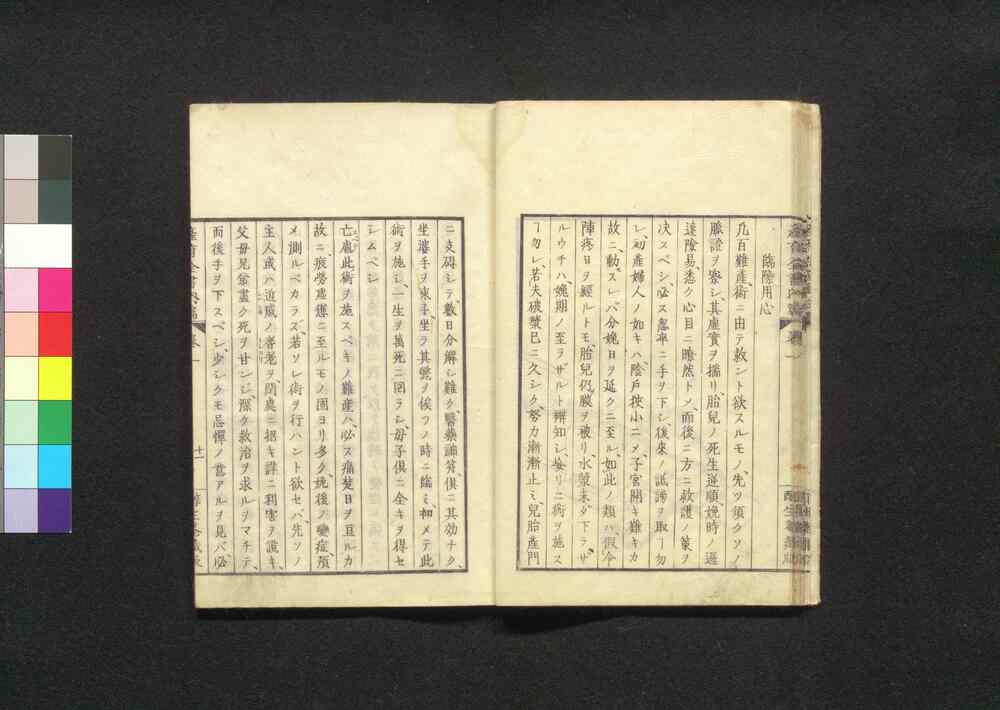 臨産用心
凡百難産、術ニ由テ救ント欲スルモノ、先ツ須クソノ
脈證ヲ察シ、其虚實ヲ揣リ、胎兒ノ死生逆順娩時ノ遲
速險易、悉ク心目ニ瞭然トメ、而後ニ方ニ救護ノ策ヲ
決スベシ、必ス麁率ニ手ヲ下シ、後來ノ詆謗ヲ取ヿ勿
レ、初産婦人ノ如キハ、陰戸挾小ニメ、子宮開キ難キカ
故ニ、動スレバ分娩日ヲ延クニ至ル、如此ノ類ハ、假令
陣疼日ヲ經ルトモ、胎兒仍膜ヲ被リ、水漿未ダ下ラザ
ルウチハ、娩期ノ至ラザルト辨知シ、妄リニ術ヲ施ス
ヿ勿レ、若夫破漿已ニ久シク、努力漸漸止ミ、兒胎産門
ニ支碍シテ、數日分解シ難ク、醫藥禱筭倶ニ其効ナク、
坐婆手ヲ束子、坐ラ其斃ヲ俟ツノ時ニ臨ミ、初メテ此
術ヲ施シ、一生ヲ萬死ニ回ラシ、母子倶ニ全キヲ得セ
シムベシ
亡慮此術ヲ施スベキノ難産ハ、必ス痛楚日ヲ亘ルカ
故ニ、疲勞虚憊ニ至ルモノ固ヨリ多ク、娩後ノ變症、預
メ測ルベカラズ、若ソレ術ヲ行ハント欲セバ、先ソノ
主人或ハ迫戚ノ耆老ヲ閑處ニ招キ、諄ニ利害ヲ説キ、
父母兄翁盡ク死ヲ甘ンジ、深ク救治ヲ求ルヲマチテ、
而後手ヲ下スベシ、少シクモ忌憚ノ意アルヲ見バ、必
十一